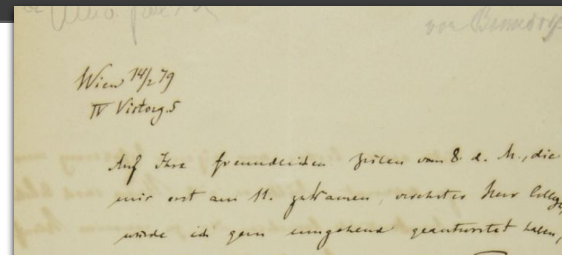 von Benndorf
Wien 14/2 79
IV Victorg. 5
Auf Ihre freundlichen Zeilen vom 8. d. M., die
mir erst am 11. zukamen, verehrter Herr College,
würde ich gern umgehend geantwortet haben,